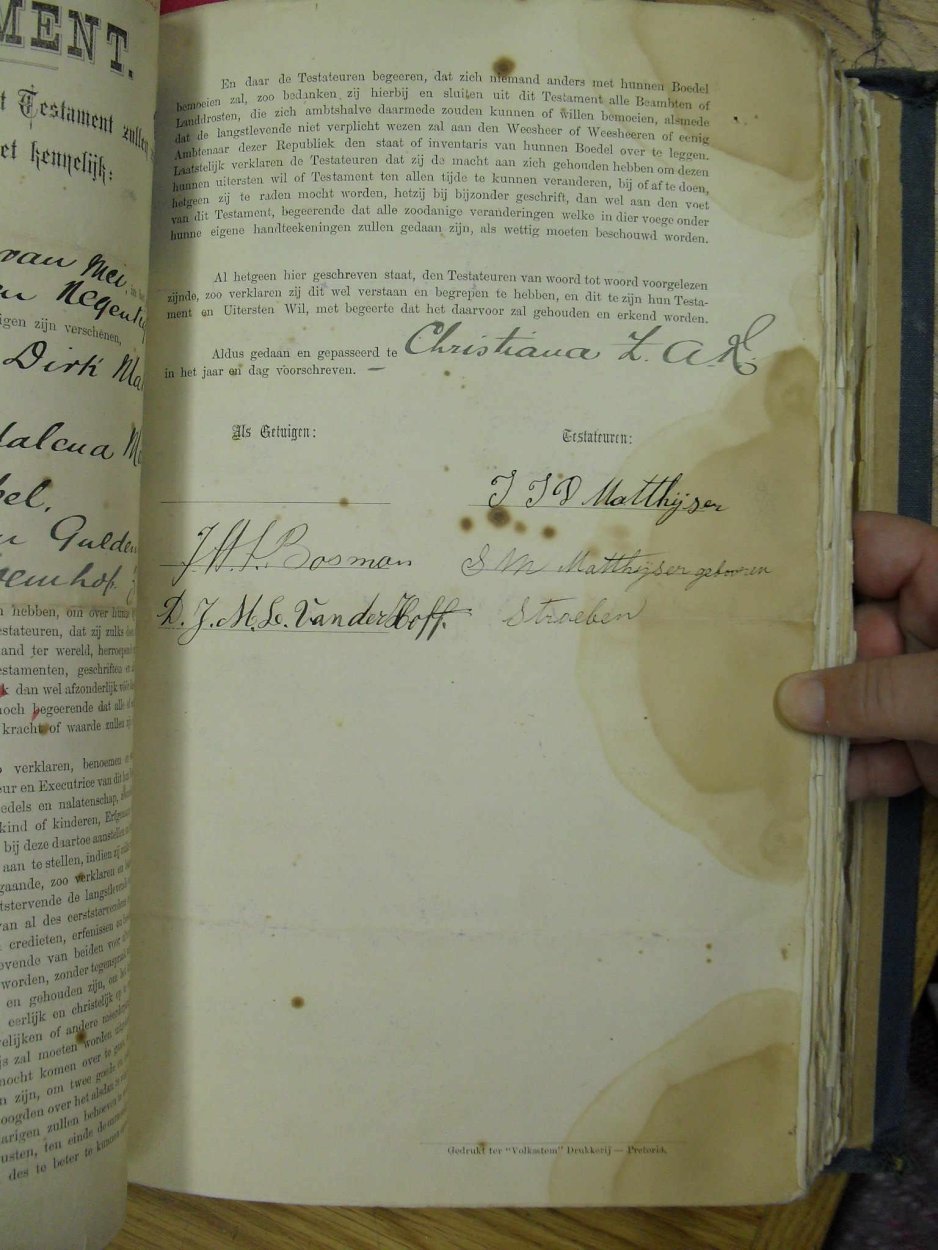 MENT.
t Testament zullen
et kennelijk:
van Mei
en Negenti
igen zijn verschenen,
Dirk Ma
dalena M
bel.
n Gulden
oemhof
n hebben, om over hunne
estateuren, dat zij zulks
and ter wereld, herroepende
estamenten, geschriften en
k dan wel afzonderlijk
noch begeerende dat alle
kracht of waarde zullen
verklaren, benoemen en
eur en Executrice van dit
edels en nalatenschap,
kind of kinderen, Erfgenamen
bij deze daartoe aanstellen
aan te stellen, indien zij
gaande, zoo verklaren en
tstervende de langstlevende
van al des eerststervenden
credieten, erfenissen en
ovende van beiden voor
worden, zonder tegenspraak
en gehouden zijn, om het
eerlijk en christelijk op
elijken of andere
js zal moeten worden
mocht komen over te gaan
n zijn, om twee goede
oogden over het alsdan
arigen zullen behoeven
usten, ten einde
des te beter te kunnen
En daar de Testateuren begeeren, dat zich niemand anders met hunnen Boedel
bemoeien zal, zoo bedanken zij hierbij en sluiten uit dit Testament alle Beambten of
Landdrosten, die zich ambtshalve daarmede zouden kunnen of willen bemoeien, alsmede
dat de langstlevende niet verplicht wezen zal aan den Weesheer of Weesheeren of eenig
Ambtenaar dezer Republiek den staat of inventaris van hunnen Boedel over te leggen.
Laatstelijk verklaren de Testateuren dat zij de macht aan zich gehouden hebben om dezen
hunnen uitersten wil of Testament ten allen tijde te kunnen veranderen, bij of af te doen,
hetgeen zij te raden mocht worden, hetzij bij bijzonder geschrift, dan wel aan den voet
van dit Testament, begeerende dat alle zoodanige veranderingen welke in dier voege onder
hunne eigene handteekeningen zullen gedaan zijn, als wettig moeten beschouwd worden.
Al hetgeen hier geschreven staat, den Testateuren van woord tot woord voorgelezen
zijnde, zoo verklaren zij dit wel verstaan en begrepen te hebben, en dit te zijn hun Testa-
ment en Uitersten Wil, met begeerte dat het daarvoor zal gehouden en erkend worden.
Aldus gedaan en gepasseerd te Christiana Z. A. R.
in het jaar en dag voorschreven. —
Als Getuigen:
Testateuren:
J J D Matthijser
J. H. L. Bosman
S M Matthijser gebooren
D. J. M. Le. Van der Hoff.
Stroeben
Gedrukt ter "Volksstem" Drukkerij — Pretoria.